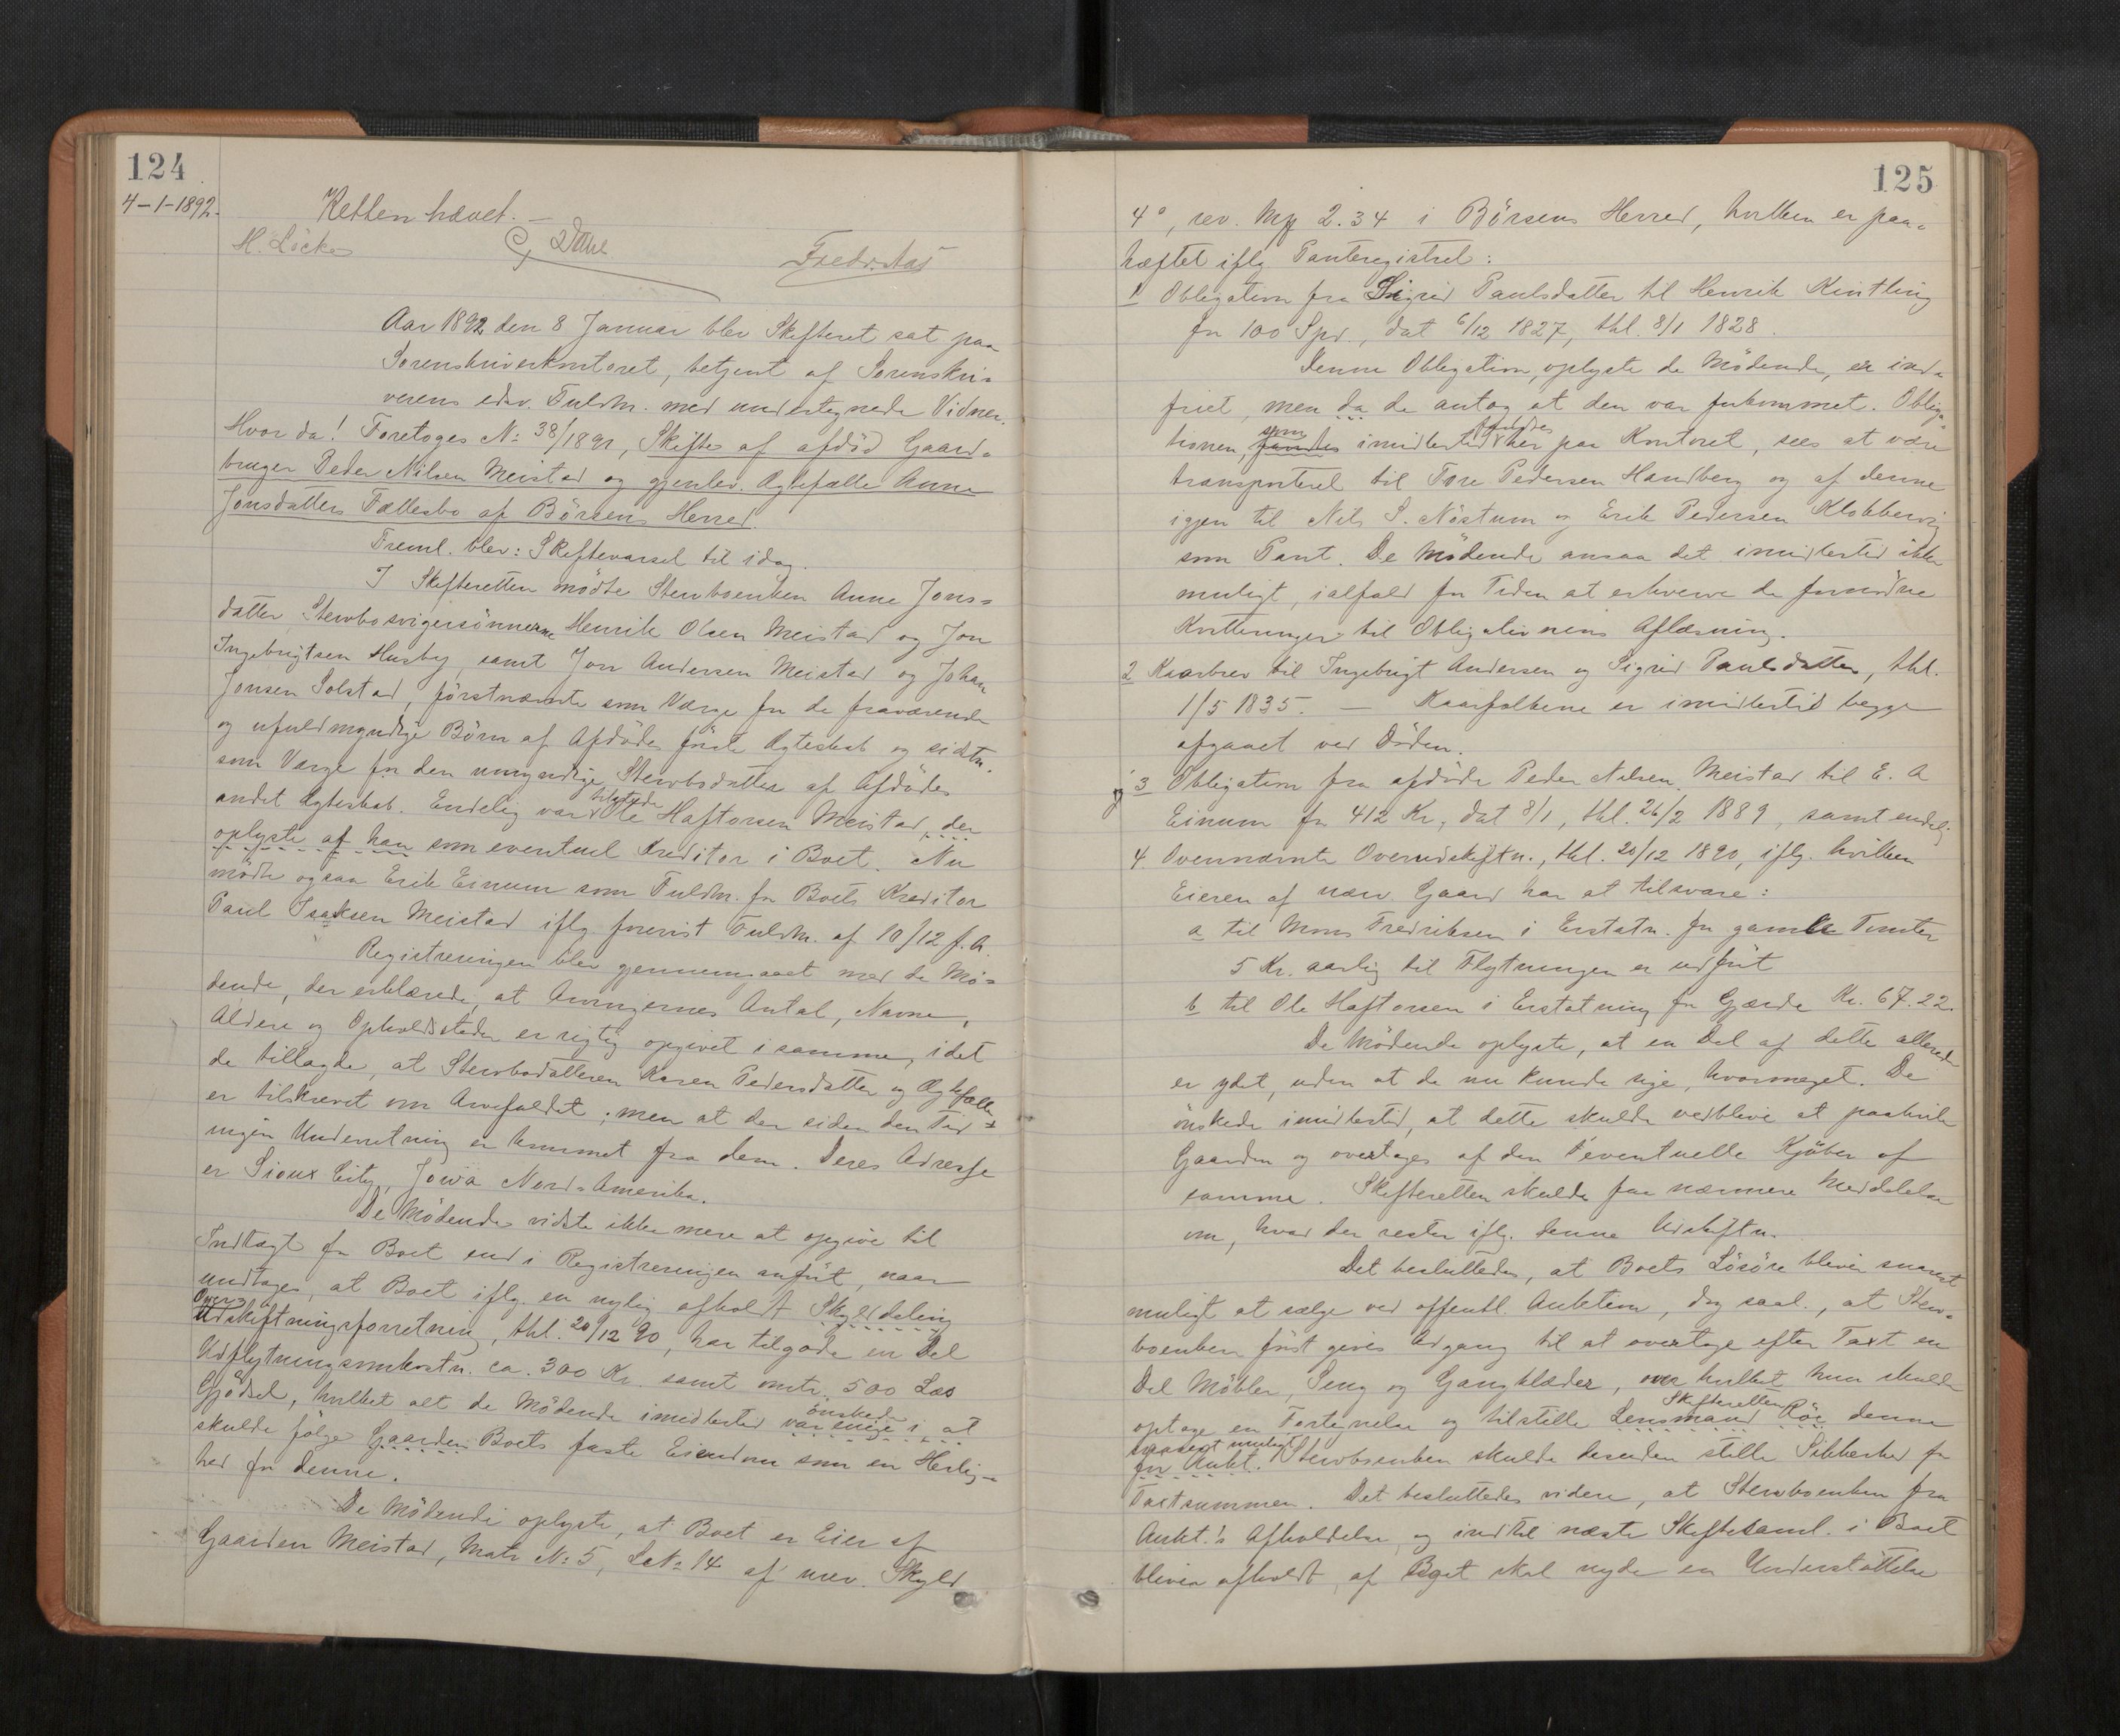 124
4-1-1892.
Retten hævet. —
M. Löcke C. Dahl Fredr. Aas
Aar 1892 den 8 Januar blev Skifteret sat paa
Sorenskriverkontoret, betjent af Sorenskri=
verens edsv. Fuldm. med undertegnede Vidner.
Hvor da! Foretoges No 38/1891, Skifte af afdöd Gaard=
bruger Peder Nilsen Meistad og gjenlev. Ægtefælle Anne
Jonsdatters Fællesbo af Börsens Herred.
Freml. blev: Skiftevarsel til idag.
I Skifteretten mödte Stervboenken Anne Jons=
datter, Stervbosvigersönnerne Henrik Olsen Meistad og Jon
Ingebrigtsen Husby, samt Jon Andersen Meistad og Johan
Jonsen Solstad, förstnævnte som Værge for de fraværende
og ufuldmyndige Börn af Afdödes förste Ægteskab og sidstn.
som Værge for den umyndige Stervbodatter af Afdödes
andet Ægteskab. Endelig var tilstede Ole Haftorsen Meistad, der
oplyste af han som eventuel Kreditor i Boet. Nu
mödte ogsaa Erik Einum som Fuldm. for Boets Kreditor
Paul Isaksen Meistad iflg. forevist Fuldm. af 10/12 f. A.
Registreringen blev gjennemgaaet med de Mö=
dende, der erklærede, at Arvingernes Antal, Navne,
Aldere og Opholdssteder er rigtig opgivet i samme, idet
de tillagde, at Stervbodatteren Karen Pedersdatter og Ægtefælle
er tilskrevet om Arvefaldet; men at der siden den Tid
ingen Underretning er kommet fra dem. Deres Adresse
er Sioux City, Jowa Nord-Amerika.
De Mödende vidste ikke mere at opgive til
Indtægt for Boet end i Registreringen anfört, naar
undtages, at Boet iflg. en nylig afholdt Skylddeling
Over=
Udskiftningsforretning, thl. 20/12 90, har tilgode en Del
Udflytningsomkostn. ca. 300 Kr. samt omtr. 500 Læs
Gjödsel, hvilket alt de Mödende imidlertid önskede var enige i at
skulde fölge Gaarden Boets faste Eiendom som en Herlig=
hed for denne.
De Mödende oplyste, at Boet er Eier af
Gaarden Meistad, Matr No 5, LNo 14 af urev. Skyld
125
4°, rev. Mk 2.34 i Börsens Herred, hvilken er paa=
hæftet iflg Panteregistret:
1 Obligation fra Sigrid Paulsdatter til Henrik Kintling
for 100 Spd., dat 6/12 1827, thl. 8/1 1828.
Denne Obligation, oplyste de Mödende, er ind=
friet, men da de antog at den var forkommet. Obliga=
tionen, som fandtes imidlertid fandtes her paa Kontoret, sees at være
transporteret til Tore Pedersen Handberg og af denne
igjen til Nils S. Nöstum og Erik Pedersen Klobbervig
som Pant. De Mödende ansaa det imidlertid ikke
muligt, ialfald for Tiden at erhverve de fornödne
Kvitteringer til Obligationens Aflæsning.
2 Kaarbrev til Ingebrigt Andersen og Sigrid Paulsdatter, thl.
1/5 1835. — Kaarfolkene er imidlertid begge
afgaaet ved Döden.
3 Obligation fra afdöde Peder Nilsen Meistad til E. A
Einum for 412 Kr., dat 8/1, thl. 26/2 1889, samt endelig
4. Ovennævnte Overudskiftn., thl. 20/12 1890, iflg. hvilken
Eieren af nærv. Gaard har at tilsvare:
a til Mons Fredriksen i Erstatn. for gamle Tomter
5 Kr. aarlig til Flytningen er udfört
b til Ole Haftorsen i Erstatning for Gjærde Kr. 67.22.
De Mödende oplyste, at en Del af dette allerede
er ydet, uden at de nu kunde sige, hvormeget. De
önskede imidlertid, at dette skulde vedblive at paahvile
Gaarden og overtages af den eventuelle Kjöber af
samme. Skifteretten skulde faa nærmere Meddelelse
om, hvad der rester iflg. denne Udskiftn.
Det besluttedes, at Boets Lösöre bliver snarest
muligt at sælge ved offentl. Auktion, dog saal., at Sterv=
boenken först gives Adgang til at overtage efter Taxt en
Del Möbler, Seng og Gangklæder, over hvilket hun skulde
optage en Fortegnelse og tilstille Skifteretten Lensmand Röe denne
snarest muligt
för Aukt. Stervboenken skulde desuden stille Sikkerhed for
Taxtsummen. Det besluttedes videre, at Stervboenken fra
Aukt.'s Afholdelse, og indtil næste Skiftesaml. i Boet
bliver afholdt, af Boet skal nyde en Understöttelse